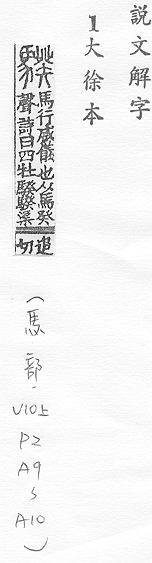 說文解字
1大徐本
騤馬行威儀也从馬癸
聲詩曰四牡騤騤渠
追
切
(馬部,V10上
P2
A9
~
A10)